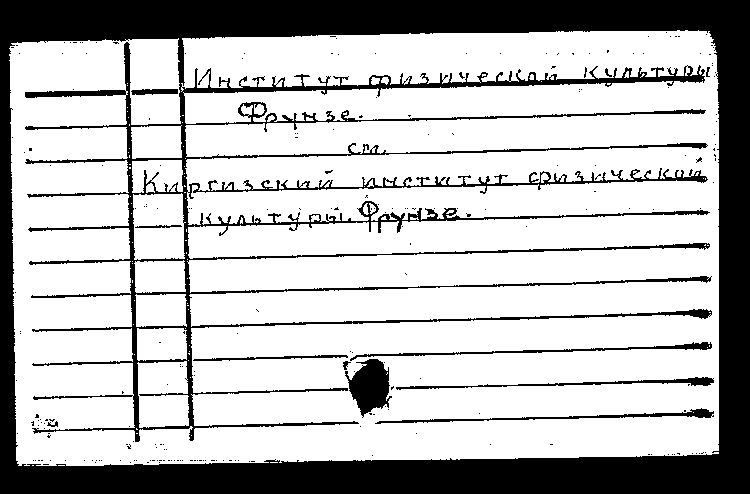 Институт физической культуры
Фрунзе.
см.
Киргизский институт физической
культуры. Фрунзе.